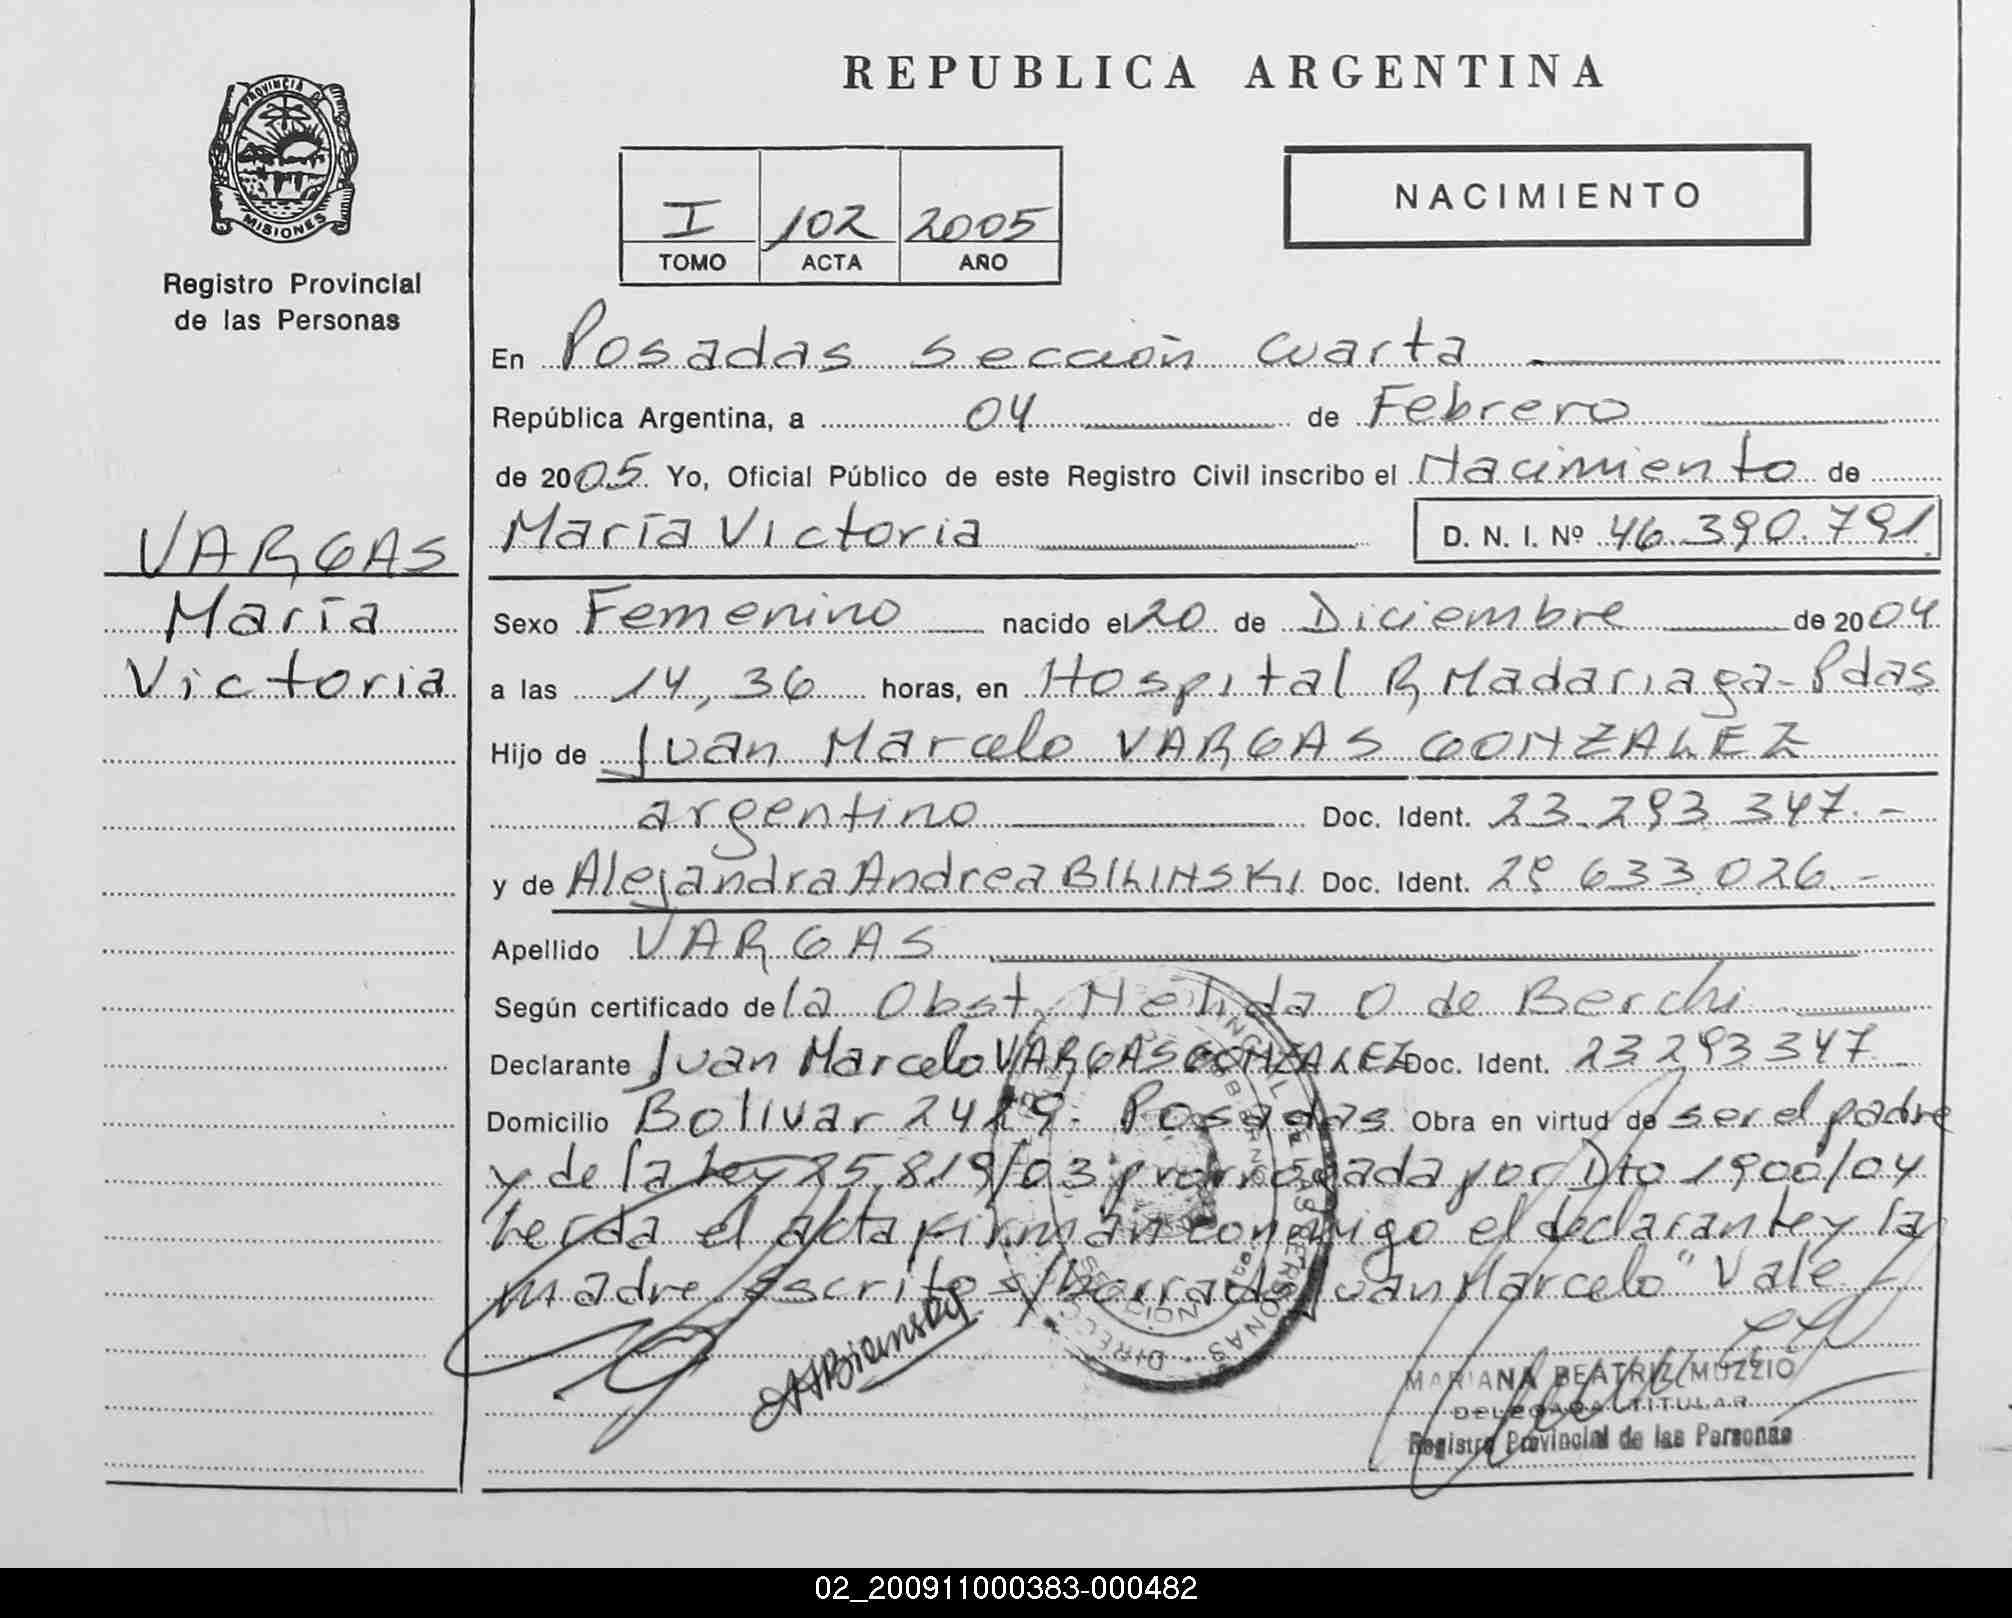 REPUBLICA ARGENTINA
PROVINCIA DE
MISIONES
Registro Provincial
de las Personas
I 102 2005
TOMO ACTA AÑO
NACIMIENTO
En Posadas sección cuarta
República Argentina, a 04 de Febrero
de 2005 Yo, Oficial Público de este Registro Civil inscribo el Nacimiento de
María Victoria D. N. I. Nº 46.390.791
VARGAS
María
Victoria
Sexo Femenino nacido el 20 de Diciembre de 2004
a las 14,36 horas, en Hospital R Madariaga - Pdas
Hijo de Juan Marcelo VARGAS GONZALEZ
argentino Doc. Ident. 23.293.347.-
y de Alejandra Andrea BILINSKI Doc. Ident. 29 633.026.-
Apellido VARGAS
Según certificado de la Obst. Nelida O de Berchi
Declarante Juan Marcelo VARGAS GONZALEZ Doc. Ident. 23 293 347
Domicilio Bolivar 2429 - Posadas Obra en virtud de ser el padre
y de la Ley 25.819/03 prorrogada por Dto 1900/04
leída el acta firman conmigo el declarante y la
madre Escrito s/borrado "Juan Marcelo" Vale
MARIANA BEATRIZ MUZZIO
DELEGADA TITULAR
Registro Provincial de las Personas
02_200911000383-000482